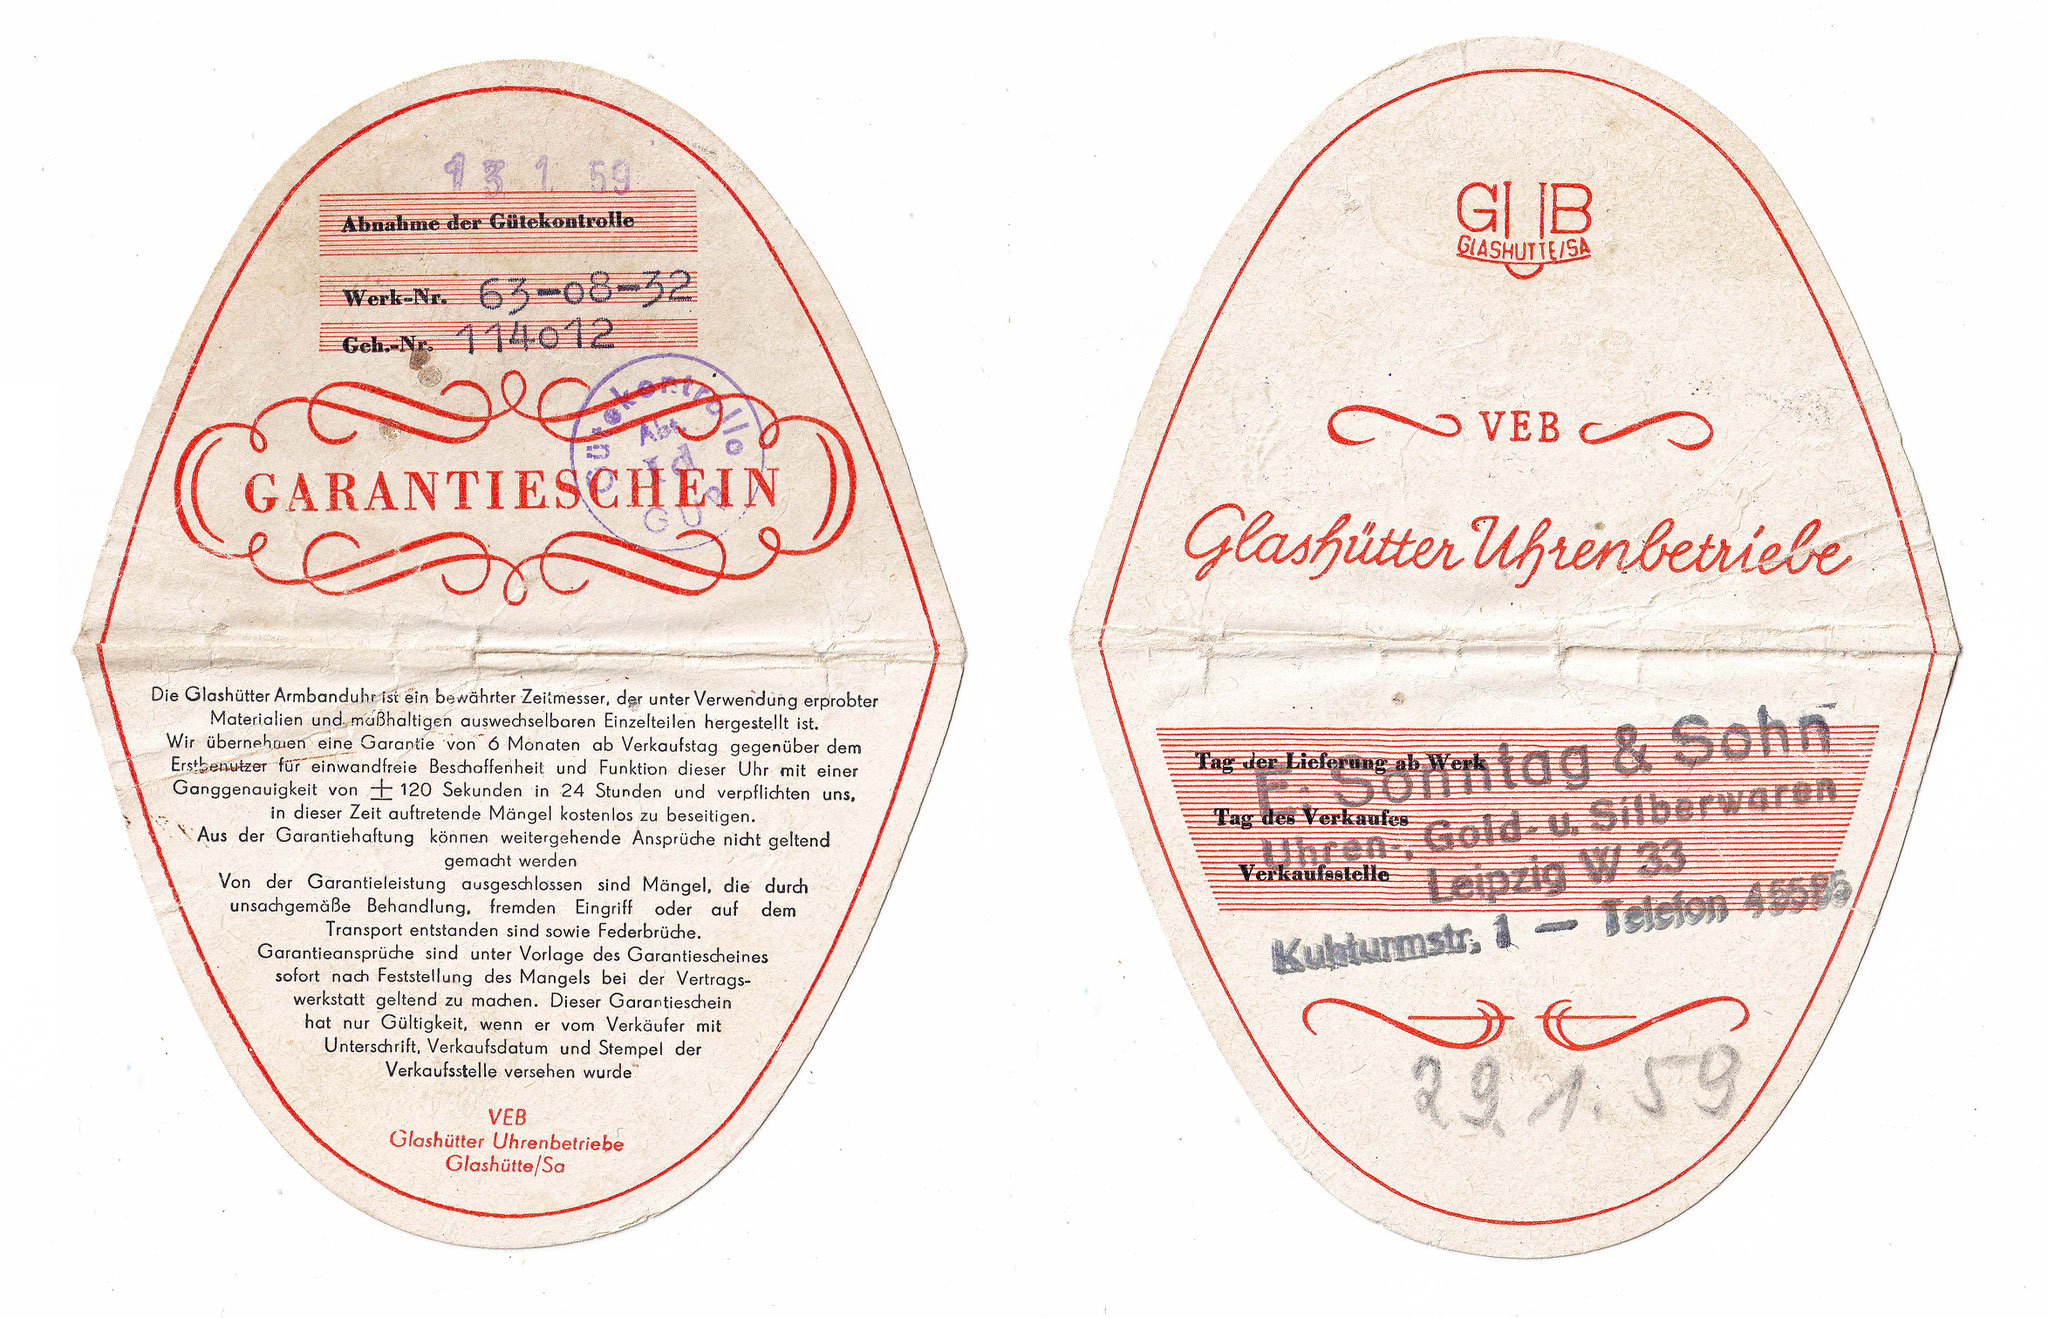 13 1 59
Abnahme der Gütekontrolle
Werk-Nr. 63-08-32
Geh.-Nr. 114012
Gütekontrolle
Abt.
GUB
GARANTIESCHEIN
Die Glashütter Armbanduhr ist ein bewährter Zeitmesser, der unter Verwendung erprobter
Materialien und maßhaltigen auswechselbaren Einzelteilen hergestellt ist.
Wir übernehmen eine Garantie von 6 Monaten ab Verkaufstag gegenüber dem
Erstbenutzer für einwandfreie Beschaffenheit und Funktion dieser Uhr mit einer
Ganggenauigkeit von ± 120 Sekunden in 24 Stunden und verpflichten uns,
in dieser Zeit auftretende Mängel kostenlos zu beseitigen.
Aus der Garantiehaftung können weitergehende Ansprüche nicht geltend
gemacht werden
Von der Garantieleistung ausgeschlossen sind Mängel, die durch
unsachgemäße Behandlung, fremden Eingriff oder auf dem
Transport entstanden sind sowie Federbrüche.
Garantieansprüche sind unter Vorlage des Garantiescheines
sofort nach Feststellung des Mangels bei der Vertrags-
werkstatt geltend zu machen. Dieser Garantieschein
hat nur Gültigkeit, wenn er vom Verkäufer mit
Unterschrift, Verkaufsdatum und Stempel der
Verkaufsstelle versehen wurde
VEB
Glashütter Uhrenbetriebe
Glashütte/Sa
GUB
GLASHÜTTE/SA
VEB
Glashütter Uhrenbetriebe
Tag der Lieferung ab Werk
Tag des Verkaufes
Verkaufsstelle
E. Sonntag & Sohn
Uhren-, Gold- u. Silberwaren
Leipzig W 33
Kuhturmstr. 1 — Telefon
29.1.59